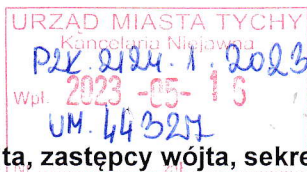 URZĄD MIASTA TYCHY
Kancelaria Niejawna
PZK. 2124. 1. 2023
Wpł. 2023 -05- 16
UM. 44327
ta, zastępcy wójta, sekre